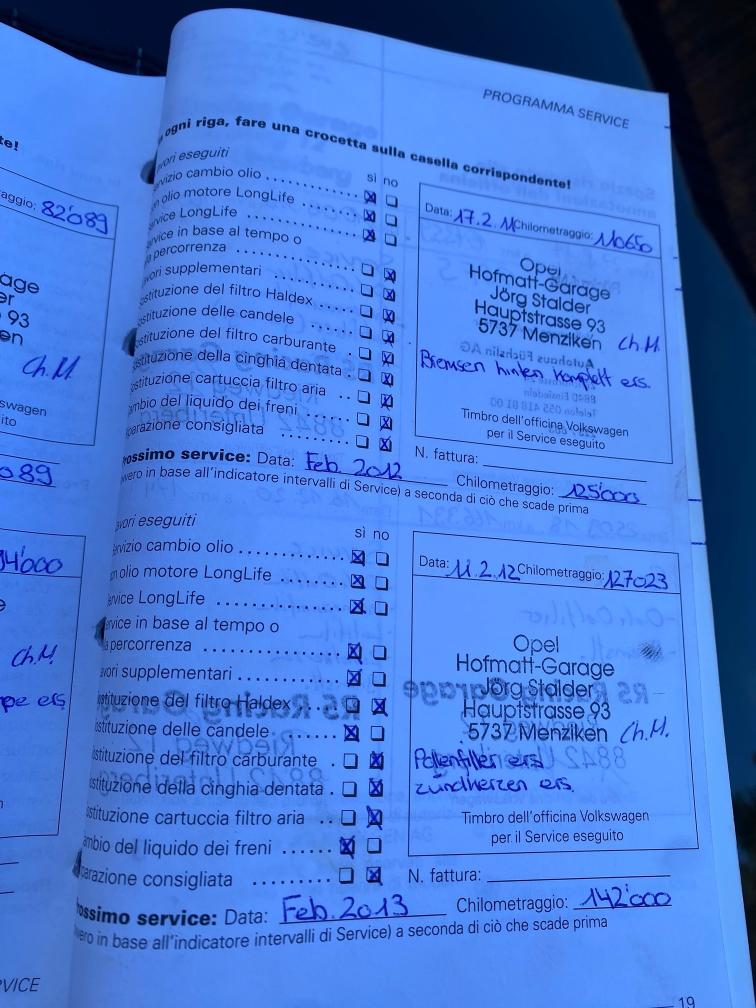 te!
aggio: 82'089
age
er
93
en
Ch.M.
swagen
ito
089
94'000
e
Ch.M.
pe ers
RVICE
PROGRAMMA SERVICE
ogni riga, fare una crocetta sulla casella corrispondente!
avori eseguiti
sì no
ervizio cambio olio
on olio motore LongLife
ervice LongLife
ervice in base al tempo o
a percorrenza
avori supplementari
ostituzione del filtro Haldex
ostituzione delle candele
ostituzione del filtro carburante
ostituzione della cinghia dentata
ostituzione cartuccia filtro aria
ambio del liquido dei freni
parazione consigliata
Data: 17.2.11 Chilometraggio: 110650
Opel
Hofmatt-Garage
Jörg Stalder
Hauptstrasse 93
5737 Menziken Ch.M.
Bremsen hinten komplett ers.
Timbro dell'officina Volkswagen
per il Service eseguito
N. fattura:
rossimo service: Data: Feb. 2012 Chilometraggio: 125'000
vvero in base all'indicatore intervalli di Service) a seconda di ciò che scade prima
avori eseguiti
sì no
ervizio cambio olio
on olio motore LongLife
ervice LongLife
ervice in base al tempo o
a percorrenza
avori supplementari
ostituzione del filtro Haldex
ostituzione delle candele
ostituzione del filtro carburante
ostituzione della cinghia dentata
ostituzione cartuccia filtro aria
ambio del liquido dei freni
parazione consigliata
Data: 11.2.12 Chilometraggio: 127023
Opel
Hofmatt-Garage
Jörg Stalder
Hauptstrasse 93
5737 Menziken Ch.M.
Pollenfilter ers.
Zündkerzen ers.
Timbro dell'officina Volkswagen
per il Service eseguito
N. fattura:
rossimo service: Data: Feb. 2013 Chilometraggio: 142'000
vvero in base all'indicatore intervalli di Service) a seconda di ciò che scade prima
19